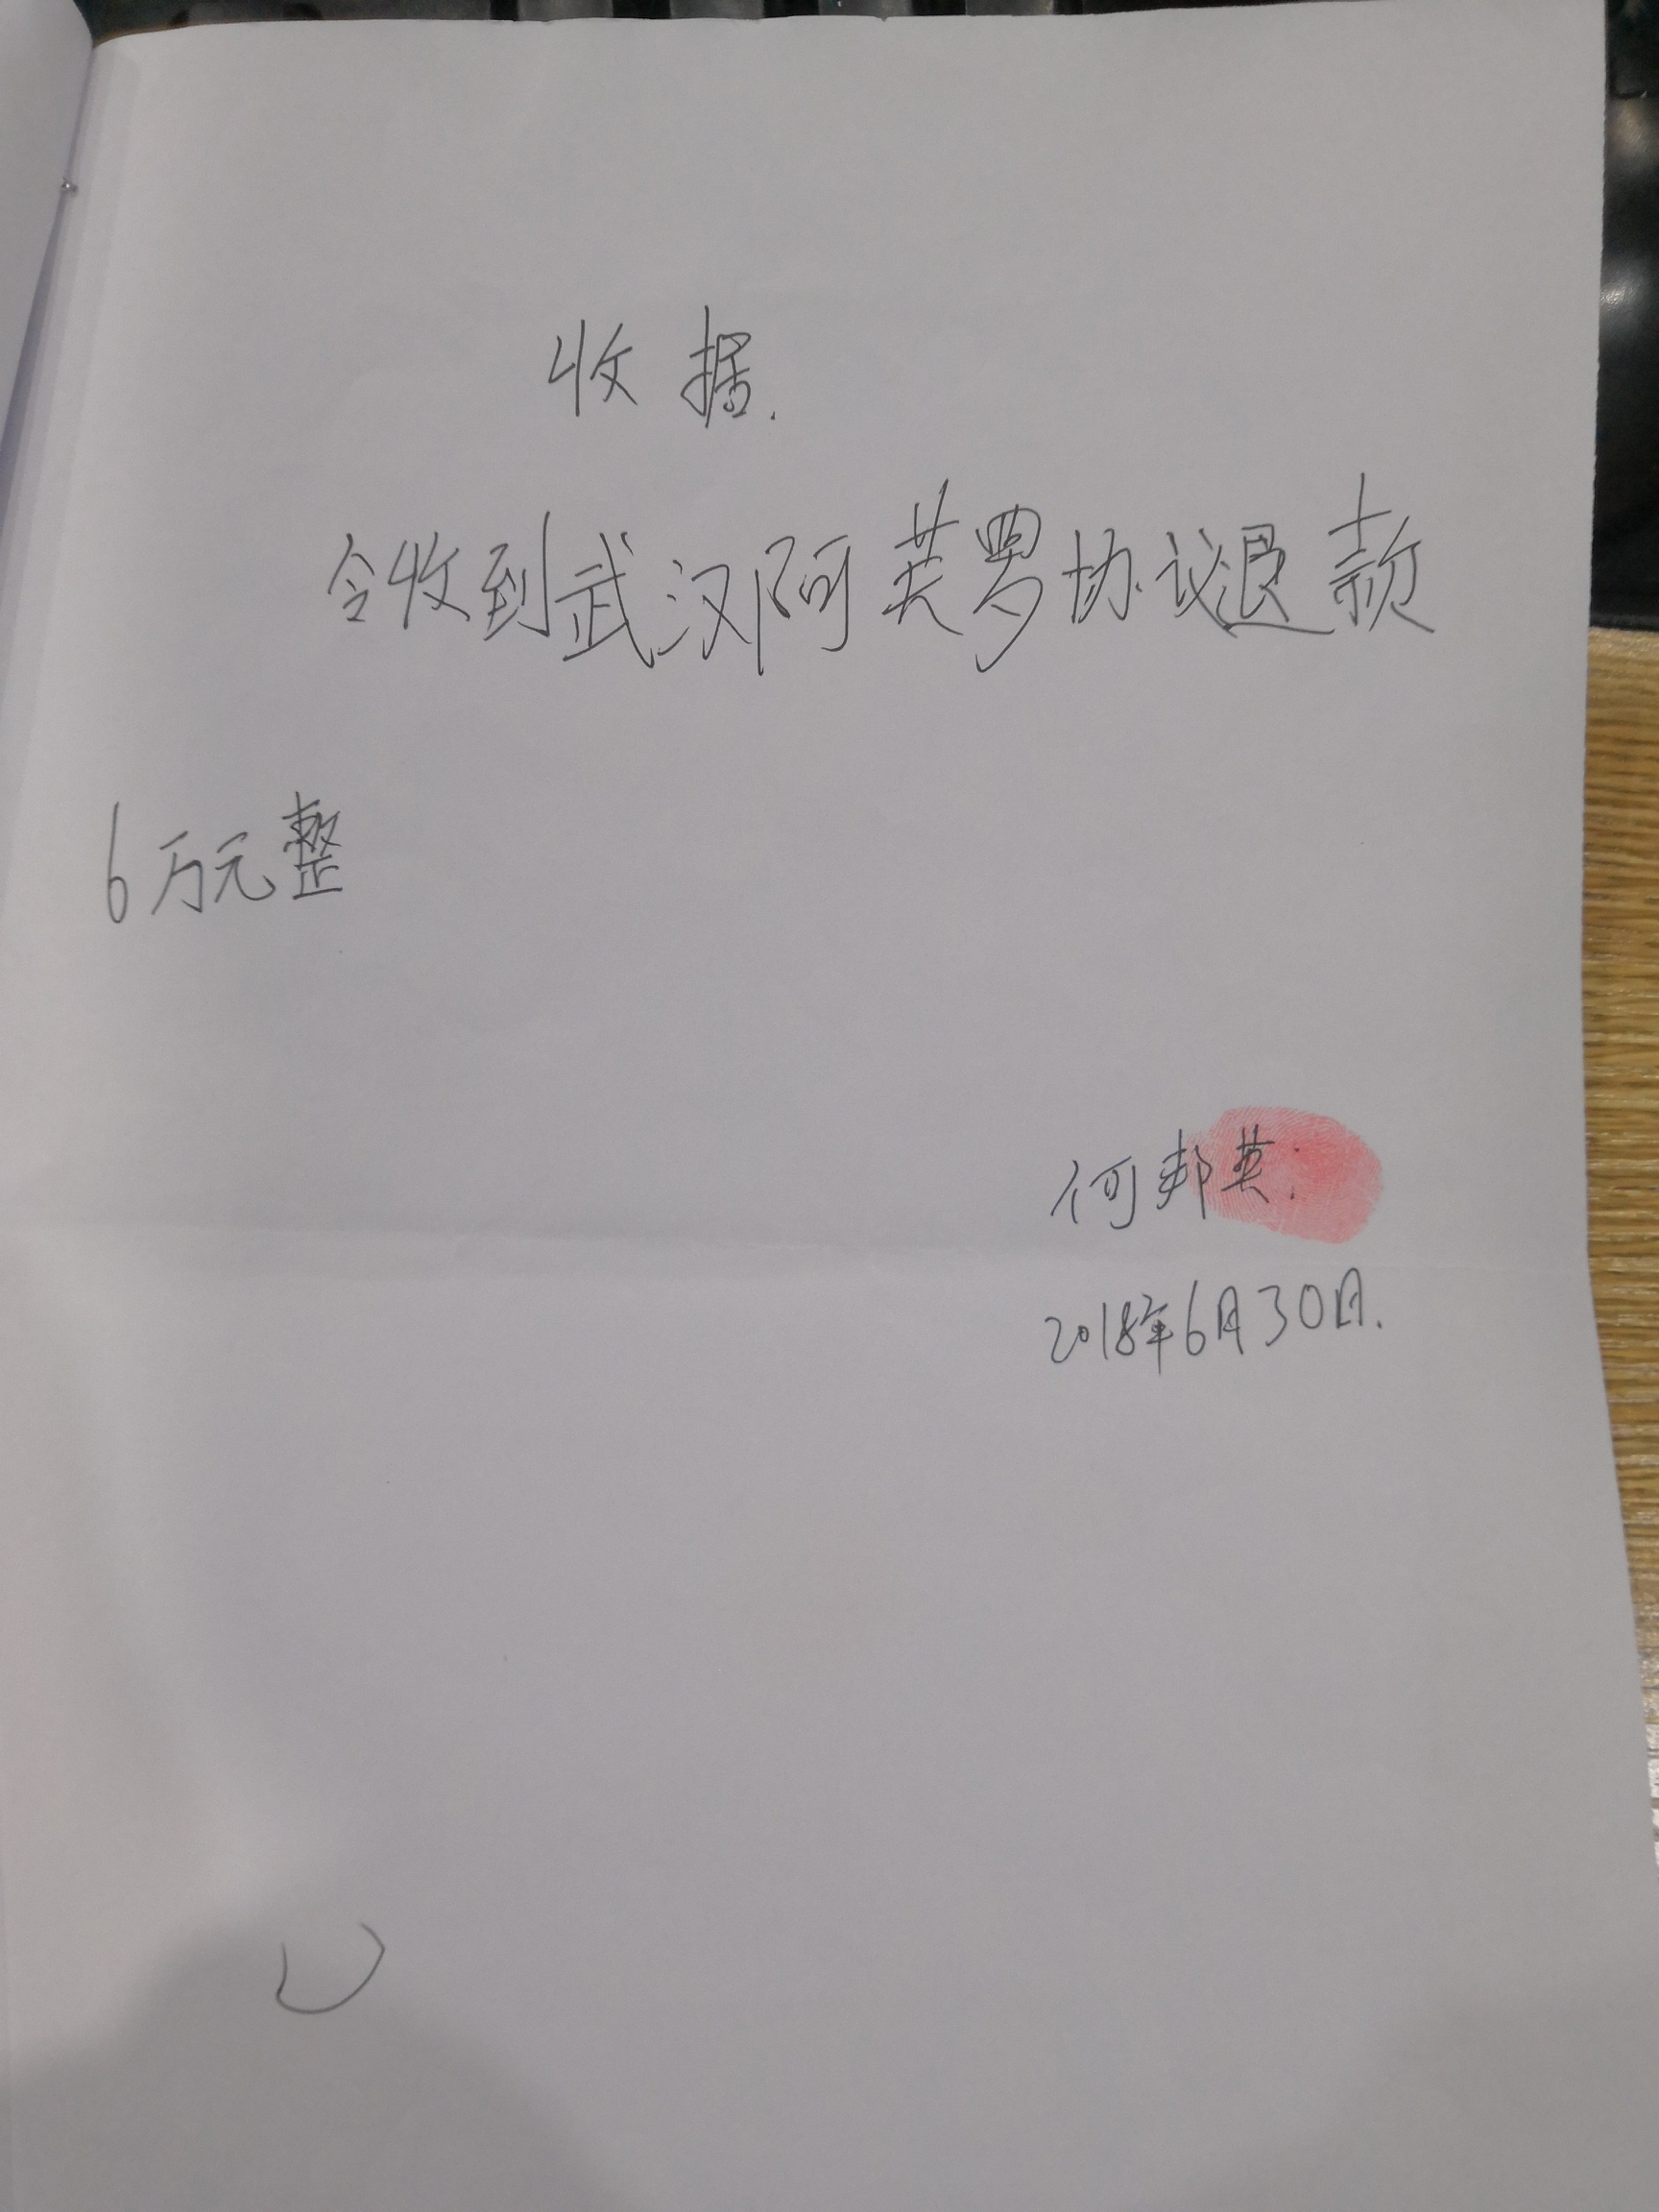 收据.
令收到武汉阿英罗协议退款
6万元整
何邦英
2018年6月30日.